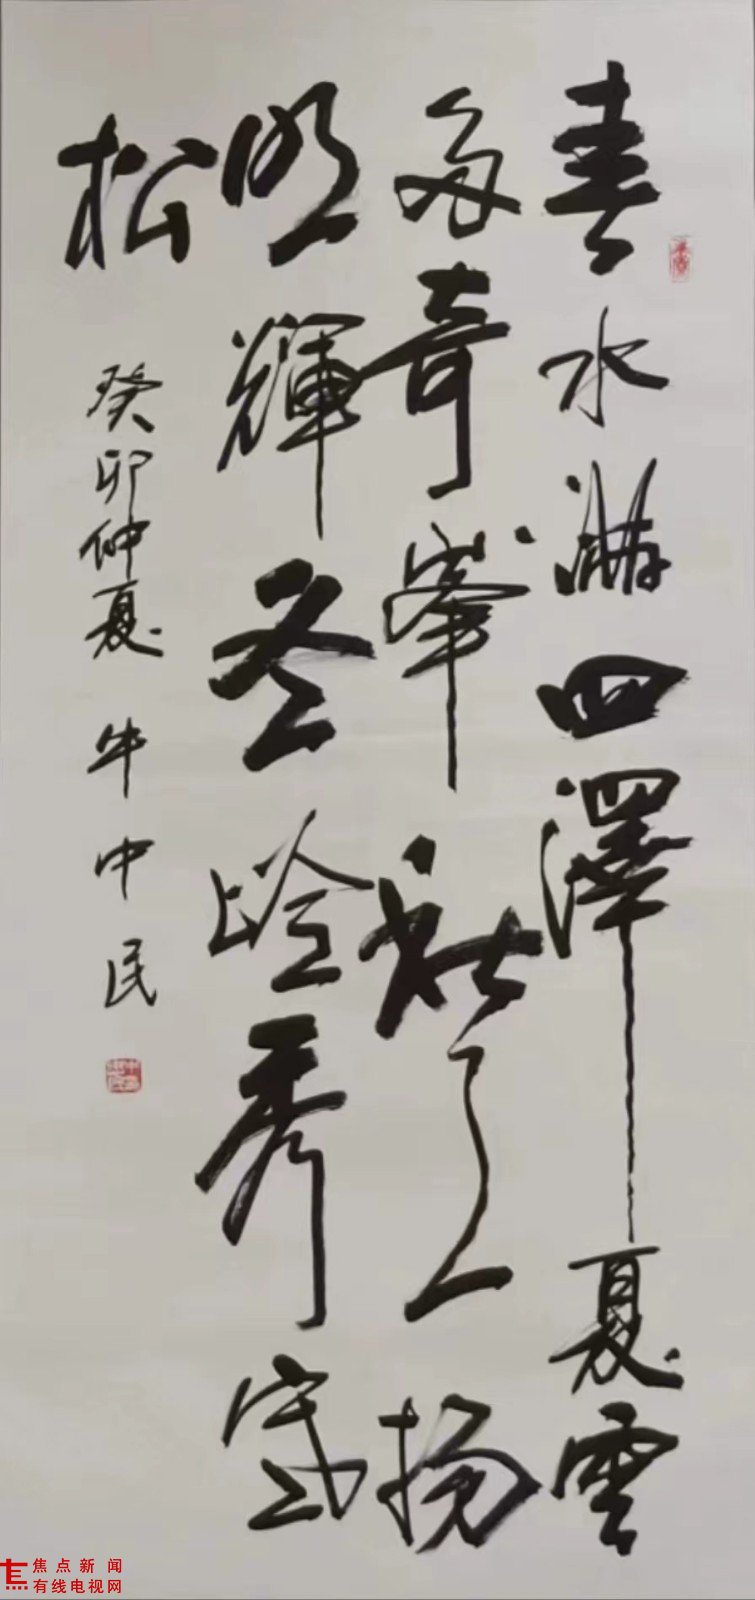 春水满四澤夏雲
多奇峯秋月扬
明輝冬岭秀寒
松
癸卯仲夏 牛中民
焦点新闻
有线电视网